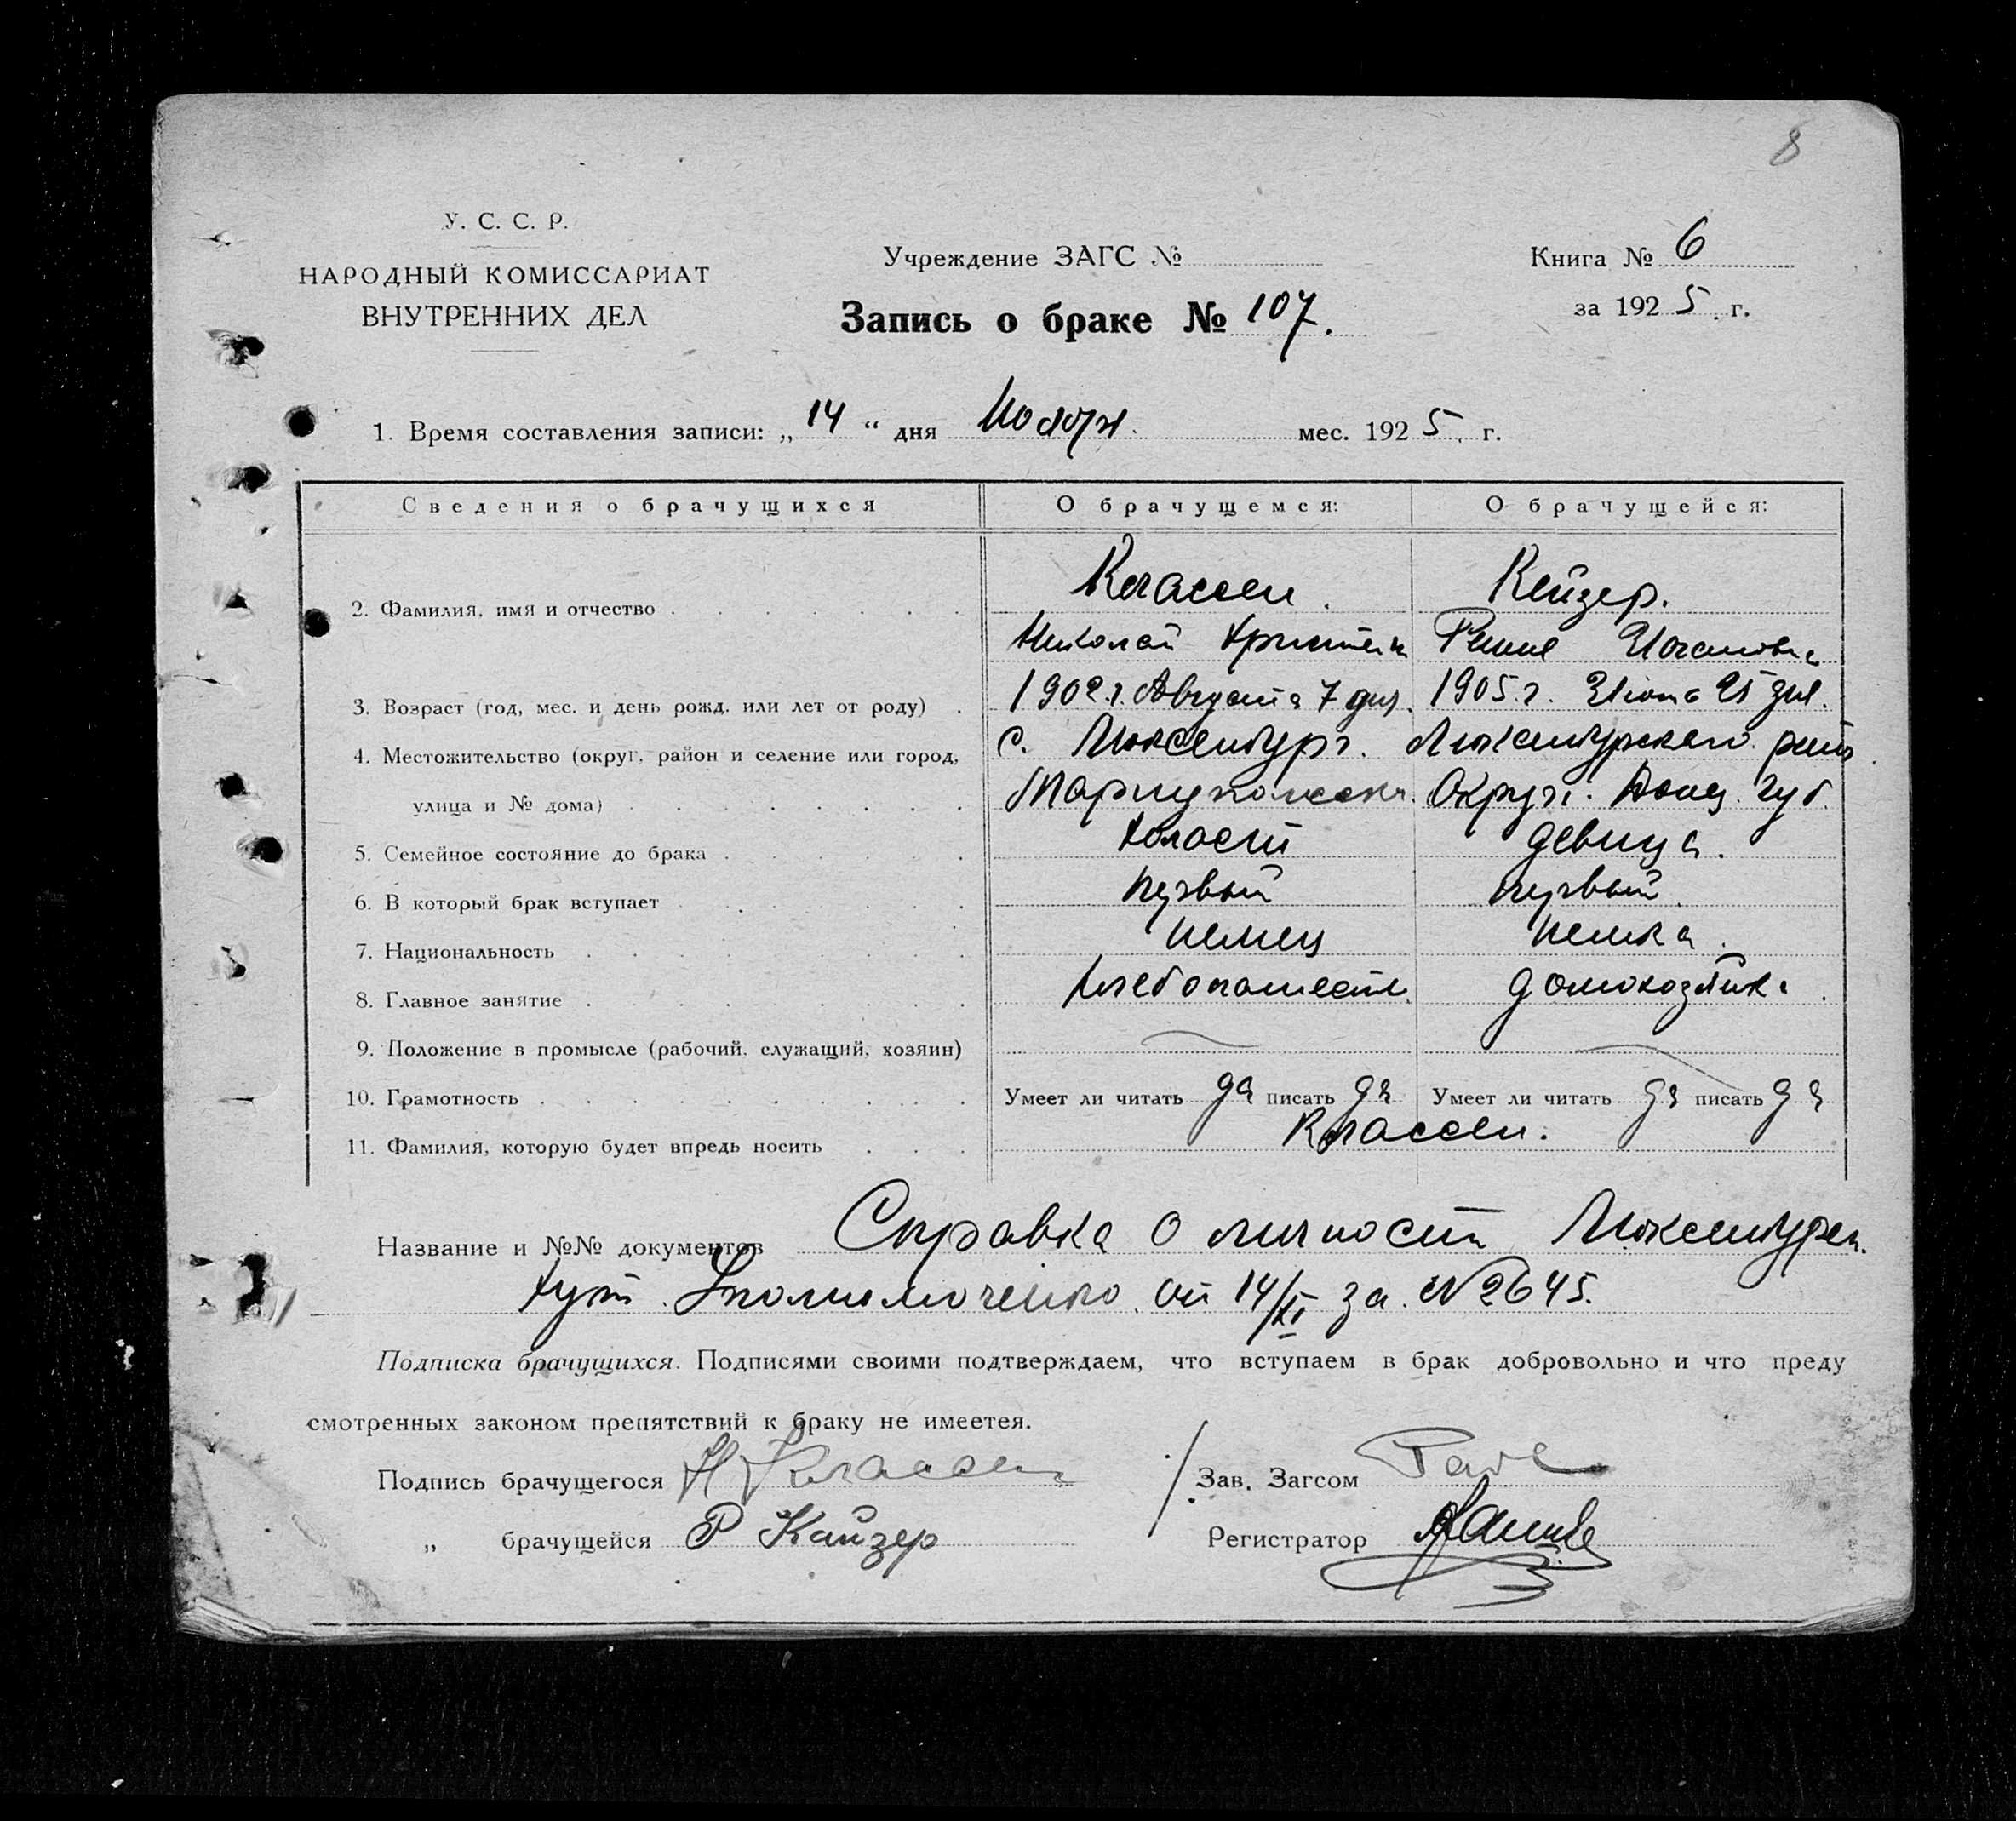 8
У. С. С. Р.
НАРОДНЫЙ КОМИССАРИАТ
ВНУТРЕННИХ ДЕЛ
Учреждение ЗАГС №
Запись о браке № 107.
Книга № 6
за 1925 г.
1. Время составления записи: „14“ дня Ноября. мес. 1925. г.
Сведения о брачущихся О брачущемся: О брачущейся:
2. Фамилия, имя и отчество Классен. Кейзер.
Николай
3. Возраст (год, мес. и день рожд. или лет от роду) 1902 г. Августа 7 дня. 1905 г. 25 дня.
4. Местожительство (округ, район и селение или город, с. Люксембург. Люксембургского
улица и № дома) Мариупольск. Округ. Донец. губ.
5. Семейное состояние до брака холост девица.
6. В который брак вступает первый первый.
7. Национальность немец немка.
8. Главное занятие домохозяйка
9. Положение в промысле (рабочий, служащий, хозяин)
10. Грамотность Умеет ли читать да писать да Умеет ли читать да писать да
11. Фамилия, которую будет впредь носить Классен.
Название и №№ документов Справка о личности
от 14/XI за № 2645.
Подписка брачущихся. Подписями своими подтверждаем, что вступаем в брак добровольно и что преду
смотренных законом препятствий к браку не имеетея.
Подпись брачущегося Н Классен Зав. Загсом
„ брачущейся Р Кайзер Регистратор